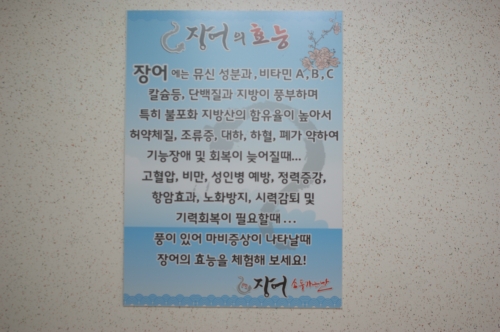 장어의 효능
장어에는 뮤신 성분과, 비타민 A, B, C
칼슘등, 단백질과 지방이 풍부하며
특히 불포화 지방산의 함유율이 높아서
허약체질, 조류증, 대하, 하혈, 폐가 약하여
기능장애 및 회복이 늦어질때...
고혈압, 비만, 성인병 예방, 정력증강,
항암효과, 노화방지, 시력감퇴 및
기력회복이 필요할때...
풍이 있어 마비증상이 나타날때
장어의 효능을 체험해 보세요!
장어